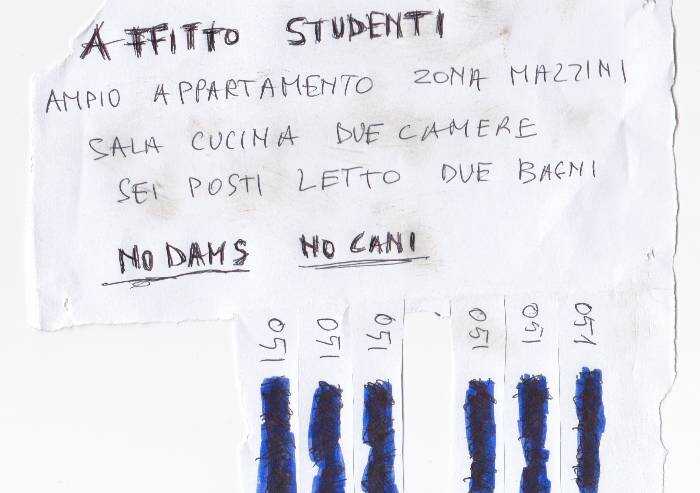 AFFITTO STUDENTI
AMPIO APPARTAMENTO ZONA MAZZINI
SALA CUCINA DUE CAMERE
SEI POSTI LETTO DUE BAGNI
NO DAMS NO CANI
051
051
051
051
051
051